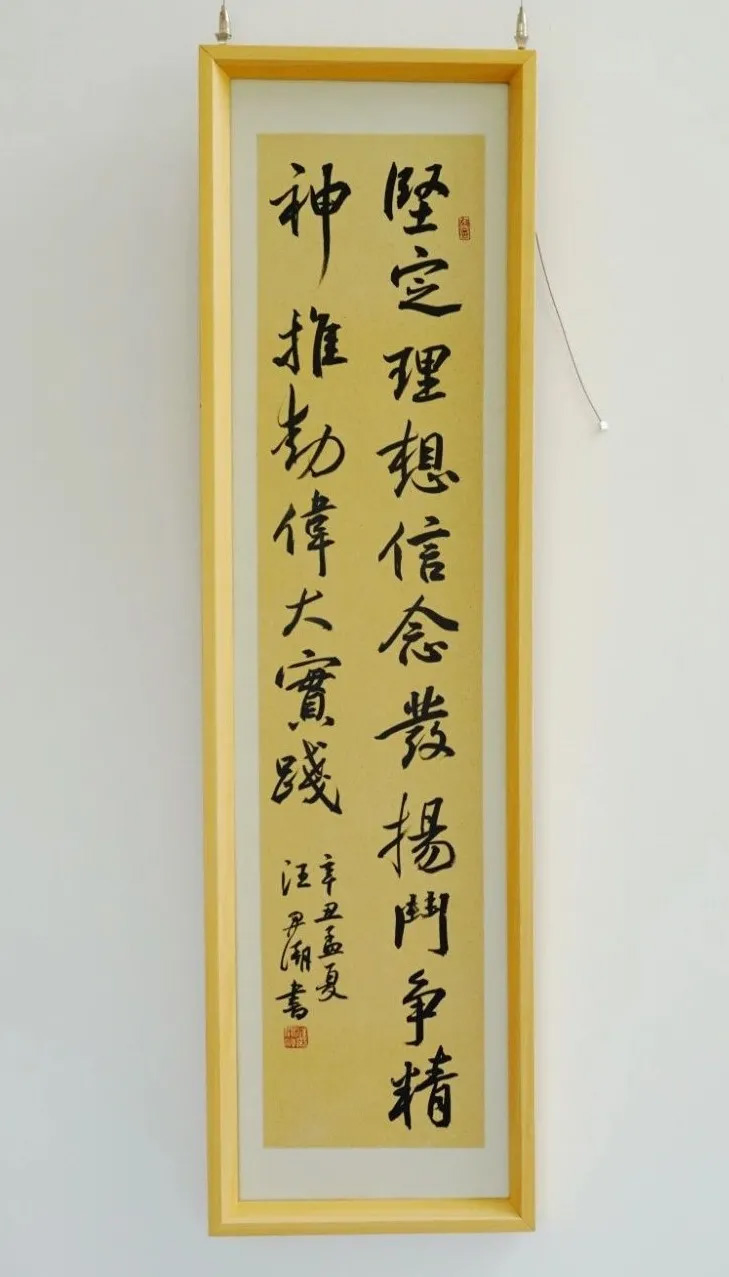 堅定理想信念發揚鬥争精
神推動偉大實踐
辛丑孟夏
汪尹潮書